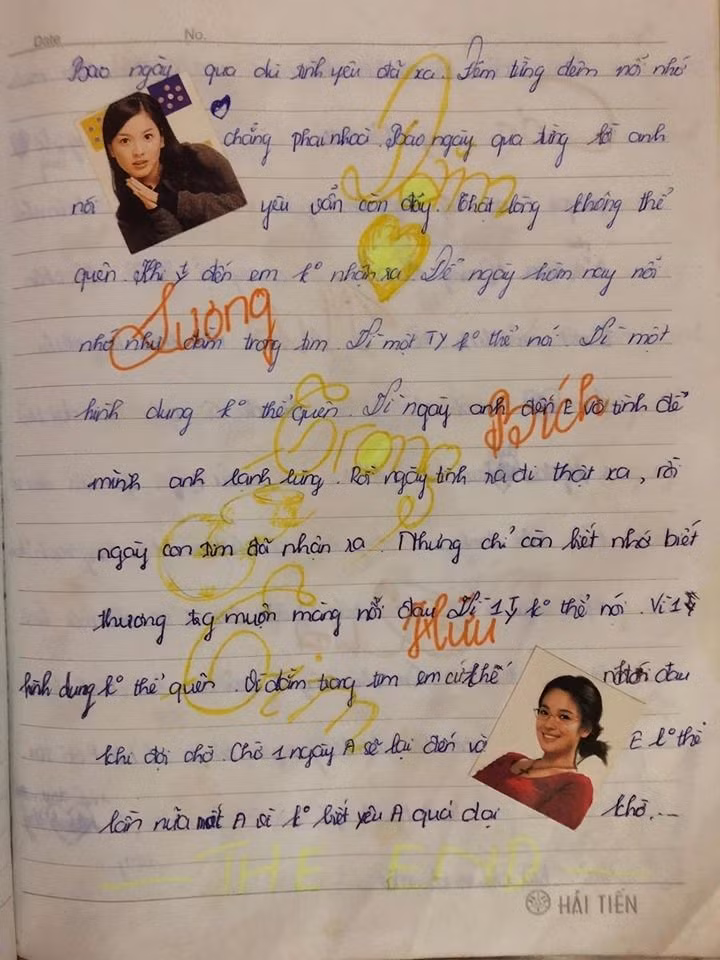 Date No.
Bao ngày qua dù tình yêu đã xa. Đêm từng đêm nỗi nhớ
chẳng phai nhoà. Bao ngày qua từng lời anh
nói yêu vẫn còn đây. Thật lòng không thể
quên. Khi ty đến em k° nhận ra. Để ngày hôm nay nỗi
nhớ như dằm trong tim. Vì một TY k° thể nói. Vì một
hình dung k° thể quên. Vì ngày anh đến E vô tình để
mình anh lạnh lùng. Rồi ngày tình ra đi thật xa, rồi
ngày con tim đã nhận ra. Nhưng chỉ còn biết nhớ biết
thương trg muộn màng nỗi đau. Vì 1 Ty k° thể nói. Vì 1
hình dung k° thể quên. Vì dằm trong tim em cứ thế nhói đau
khi đợi chờ. Chờ 1 ngày A sẽ lại đến và E k° thể
lần nữa mất A vì k° biết yêu A quá dại khờ...
Dằm
Trong
Tim
Lương
Bích
Hữu
THE END
HẢI TIẾN